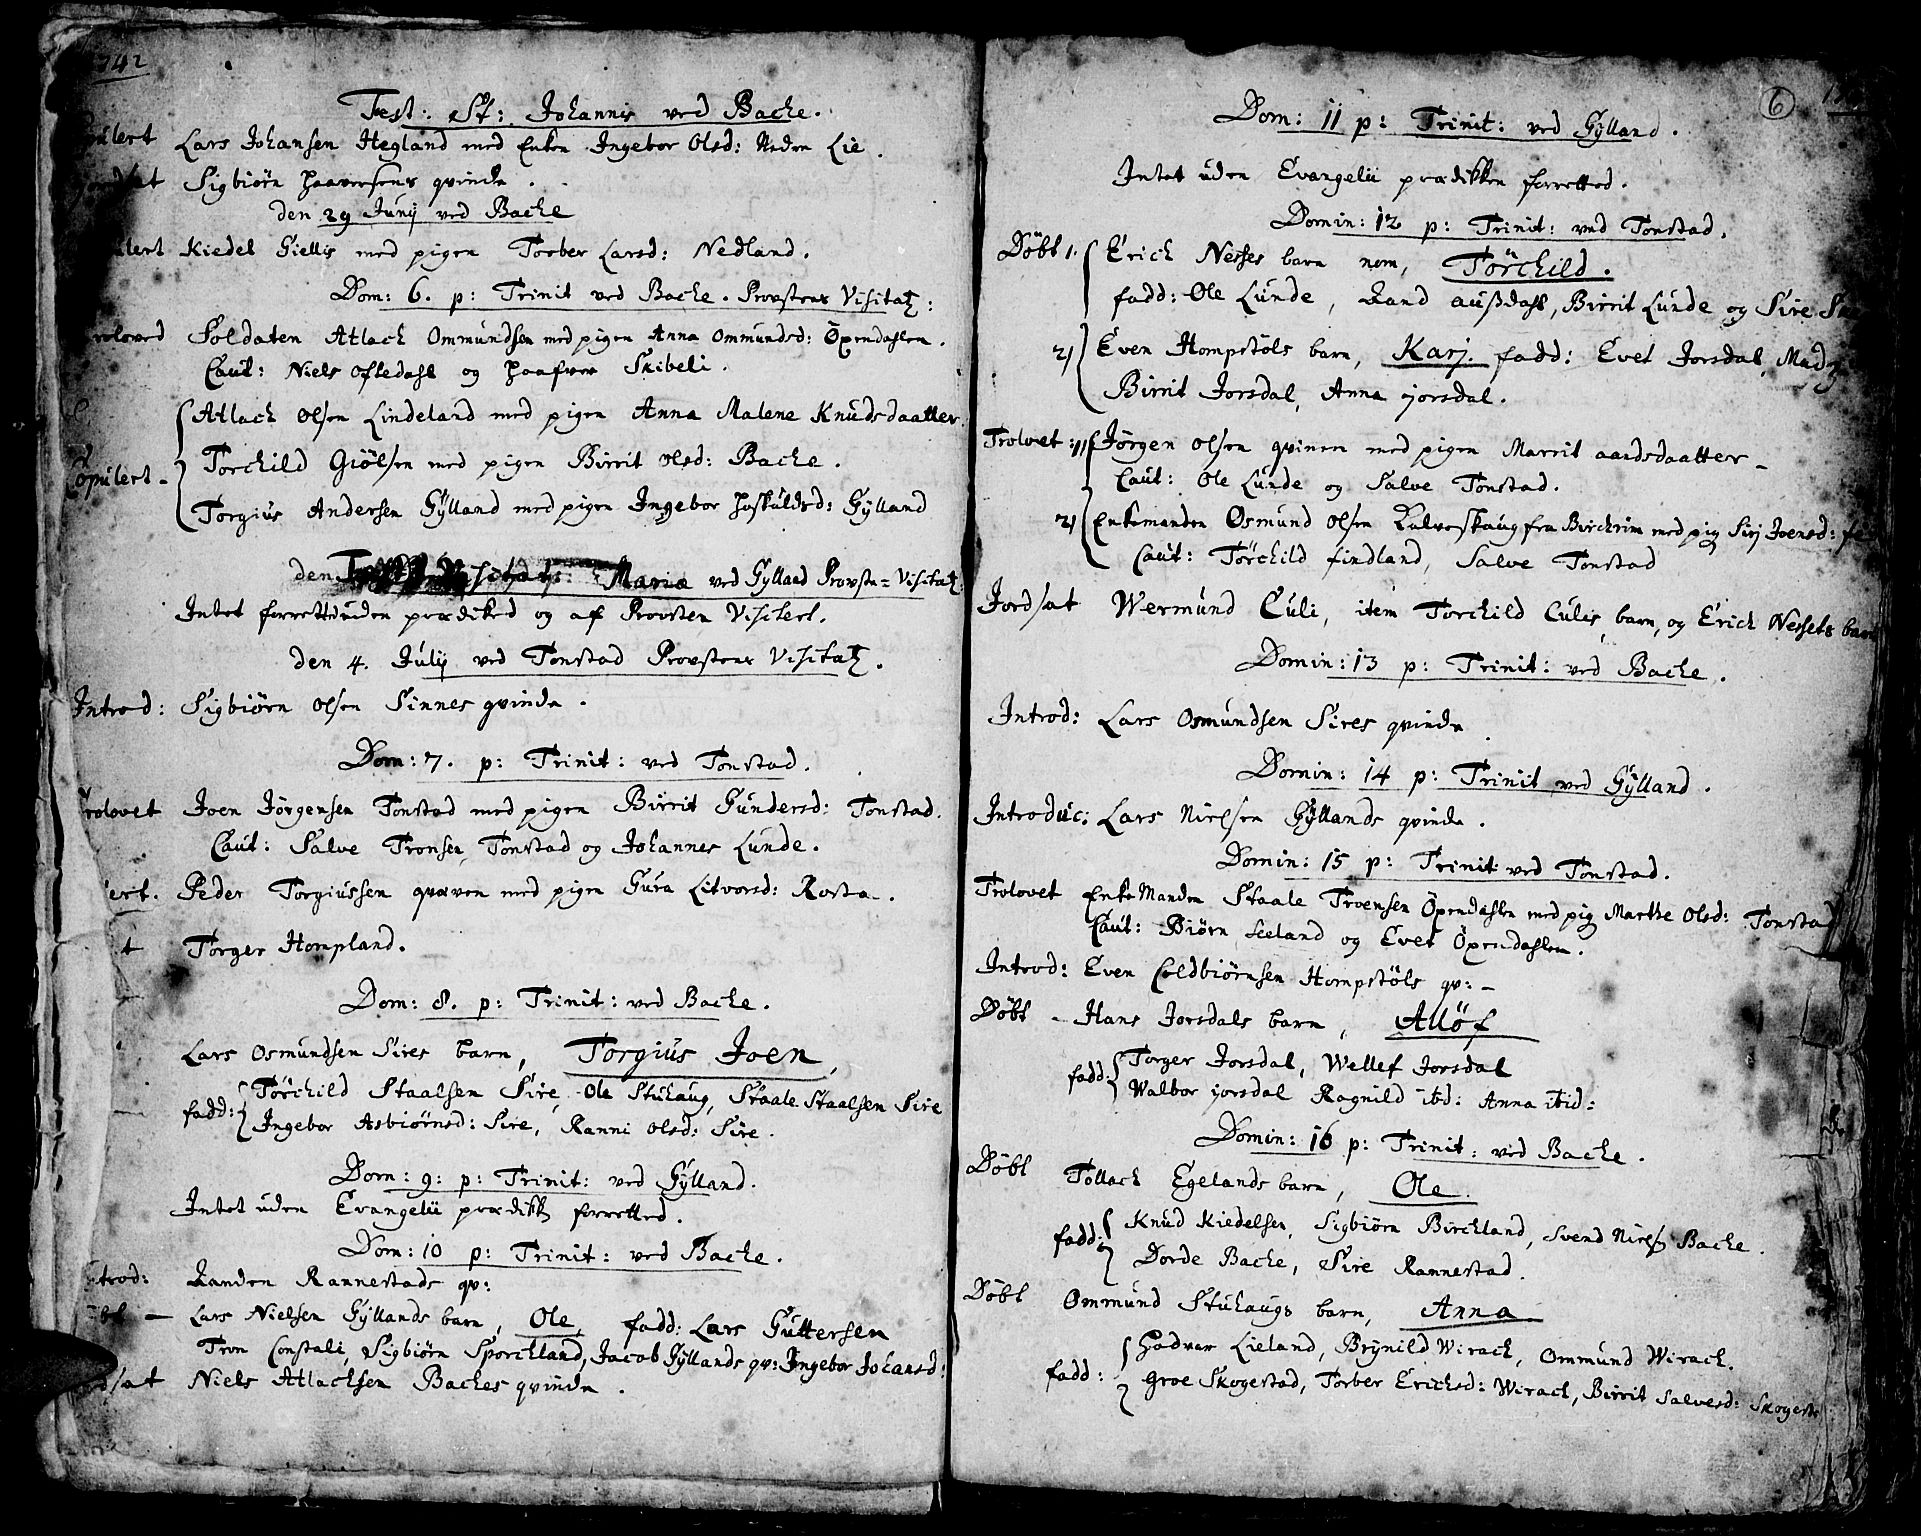 1742
Fest: St: Johannis ved Bache.
Copulert Lars Johansen Hegland med Enken Ingebor Olsd: Neden Lie.
Jordsat Sigbiörn Haaversens qvinde.
den 29 Junij ved Bache
Copulert Kiedel Giellis med pigen Torber Larsd: Nedland.
Dom: 6. p: Trinit ved Bache. Provstens Visitatz:
Troloved Soldaten Atlach Ommundsen med pigen Anna Ommundsd: Öxendahlen.
Caut: Niels Oftedahl og Haafver Skibeli.
Atlach Olsen Lindeland med pigen Anna Malene Knudsdaatter
Copulert - Torchild Giölsen med pigen Birrit Olsd: Bache.
Torgius Andersen Gylland med pigen Ingebor Hoskuldsd: Gylland
den Visitat: Mariæ ved Gylland Provste-Visitatz:
Intet forretted uden prædiked og af Provsten Visitert.
den 4. Julij ved Tonstad Provstens Visitatz.
Introd: Sigbiörn Olsen Sinnes qvinde.
Dom: 7. p: Trinit: ved Tonstad.
Trolovet Joen Jörgensen Tonstad med pigen Birrit Gundersd: Tonstad.
Caut: Salve Tronsen Tonstad og Johannes Lunde.
ert. Peder Torgiussen qvæven med pigen Gura Litvorsd: Rosta.
t Torger Hompland.
Dom: 8. p: Trinit: ved Bache.
Lars Osmundsen Sires barn, Torgius Joen,
fadd: Törchild Staalsen Sire, Ole Stuhaug, Staale Staalsen Sire
Ingebor Asbiörnsd: Sire, Ranni Olsd: Sire.
Dom: 9: p: Trinit: ved Gylland.
Intet uden Evangelii prædik forretted.
Dom: 10 p: Trinit: ved Bache.
Introd: Randen Rannestads qv:
Döbt - Lars Nielsen Gyllands barn, Ole, fadd: Lars Guttersen
Tron Constali, Sigbiörn Sporchland, Jacob Gyllands qv: Ingebor Johansd:
Jordsat Niels Atlachsen Baches qvinde.
6
Dom: 11 p: Trinit: ved Gylland.
Intet uden Evangelii prædikken forretted.
Domin: 12 p: Trinit: ved Tonstad.
Döbt 1. Erich Nesses barn nom, Törchild.
fadd: Ole Lunde, Rand Ausdahl, Birrit Lunde og Sire
2) Even Hompstöls barn, Karj. fadd: Evet Jorsdal, Madz
Birrit Jorsdal, Anna jorsdal.
Trolvet: 1) Jörgen Olsen qvinen med pigen Marrit aandsdaatter -
Caut: Ole Lunde og Salve Tonstad.
2) Enkemanden Osmund Olsen Kalveskaug fra Birchrim med pig Sirj Joensd:
Caut: Törchild findland, Salve Tonstad
Jordsat Wermund Culi, item Torchild Culis barn, og Erich Nessets barn
Domin: 13 p: Trinit: ved Bache.
Introd: Lars Osmundsen Sires qvinde
Domin: 14 p: Trinit ved Gylland.
Introduc: Lars Nielsen Gyllands qvinde.
Domin: 15 p: Trinit ved Tonstad.
Trolovet Enke Manden Staale Troensen Öxendahlen med pig Marthe Olsd: Tonstad
Caut: Biörn Seeland og Evet Öxendahlen.
Introd: Even Coldbiörnsen Hompstöls qv: -
Döbt - Hans Jorsdals barn, Allöf
fadd: Torger Jorsdal, Wellef Jorsdal
Walbor jorsdal Ragnild ibid: Anna ibid:
Domin: 16 p: Trinit: ved Bache.
Döbt Tollach Egelands barn, Ole.
fadd: Knud Kiedelsen, Sigbiörn Birchland, Svend Niels Bache.
Dorde Bache, Sire Rannestad.
Döbt Ommund Stuhaugs barn, Anna
fadd: Hadvar Lieland, Brynild Wirach, Ommund Wirach.
Groe Skogestad, Torber Erichsd: Wirach, Birrit Salvesd: Skogest